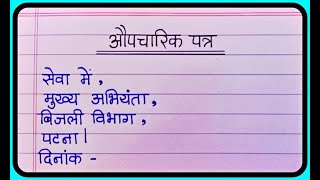 औपचारिक पत्र
सेवा में ,
मुख्य अभियंता ,
बिजली विभाग ,
पटना |
दिनांक -